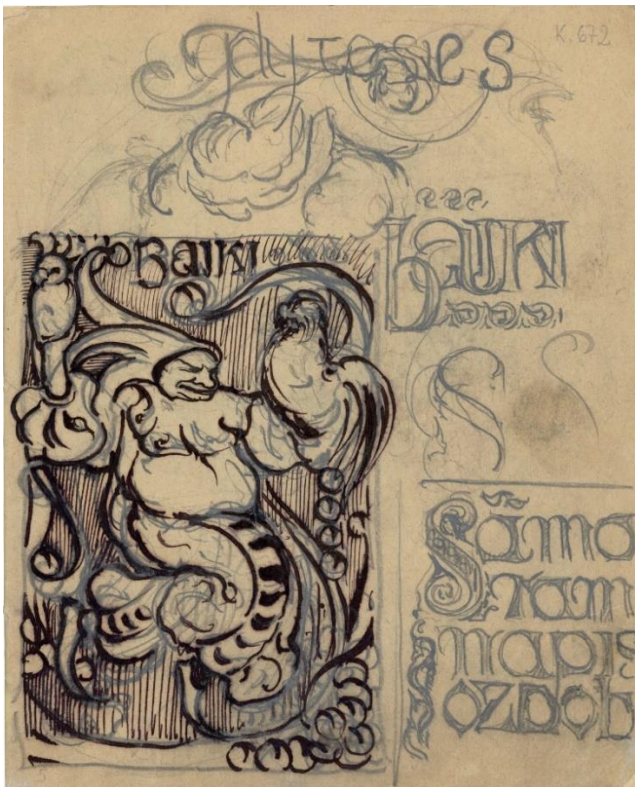 K. 672
gdy
BAJKI
BAJKI
Sama
ram
napis
ozdob